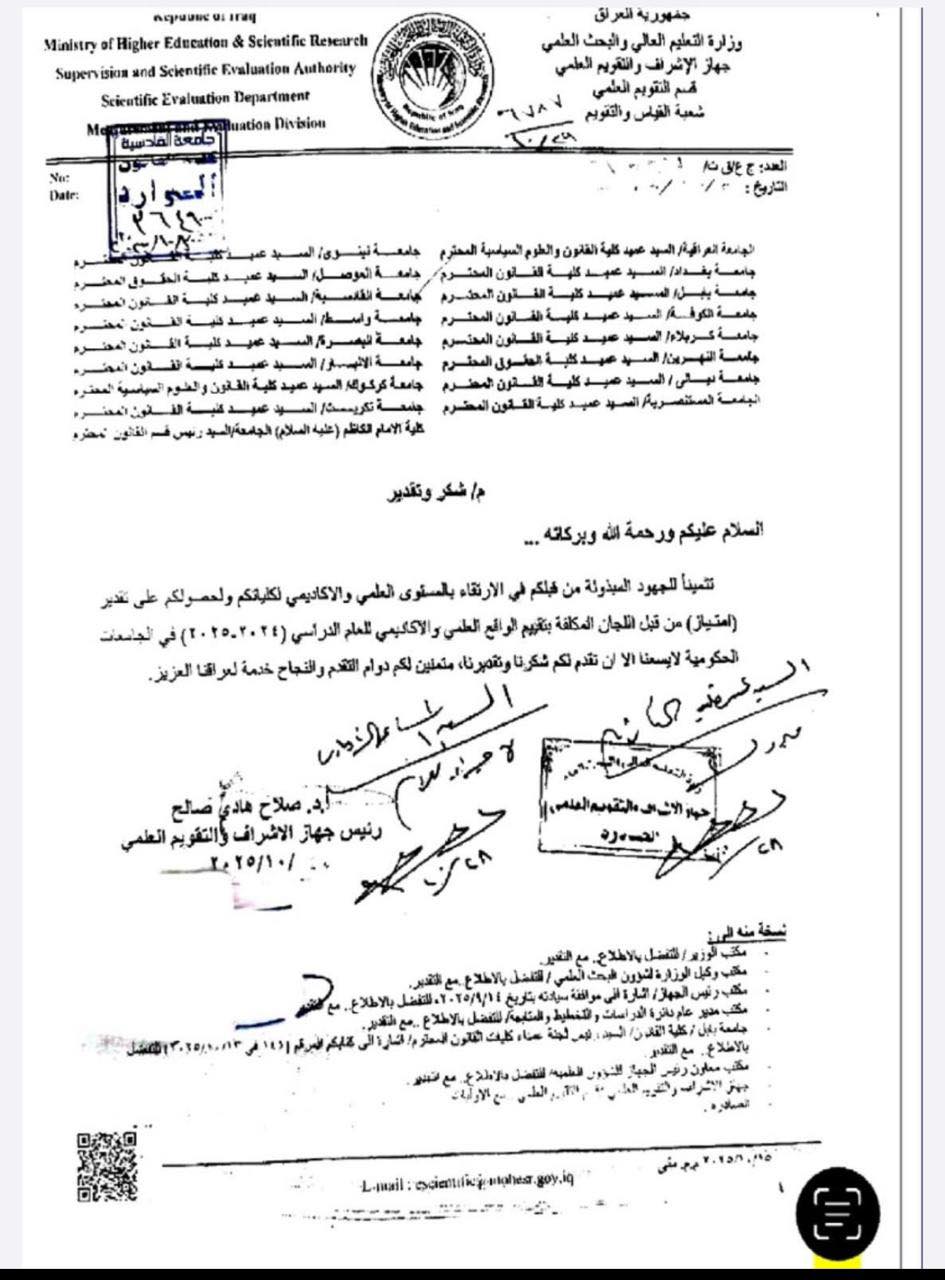 Republic of Iraq
Ministry of Higher Education & Scientific Research
Supervision and Scientific Evaluation Authority
Scientific Evaluation Department
Measurement and Evaluation Division
No:
Date:
جمهورية العراق
وزارة التعليم العالي والبحث العلمي
جهاز الإشراف والتقويم العلمي
قسم التقويم العلمي
شعبة القياس والتقويم
٦٧٨٧
١٠/٢٩
العدد: ج ع/ق ت/
التاريخ:
جامعة القادسية
كلية القانون
الواردة
الجامعة العراقية/ السيد عميد كلية القانون والعلوم السياسية المحترم
جامعة بغداد/ السيد عميد كلية القانون المحترم
جامعة بابل/ السيد عميد كلية القانون المحترم
جامعة الكوفة/ السيد عميد كلية القانون المحترم
جامعة كربلاء/ السيد عميد كلية القانون المحترم
جامعة النهرين/ السيد عميد كلية الحقوق المحترم
جامعة ديالى/ السيد عميد كلية القانون المحترم
الجامعة المستنصرية/ السيد عميد كلية القانون المحترم
جامعة نينوى/ السيد عميد كلية القانون المحترم
جامعة الموصل/ السيد عميد كلية الحقوق المحترم
جامعة القادسية/ السيد عميد كلية القانون المحترم
جامعة واسط/ السيد عميد كلية القانون المحترم
جامعة البصرة/ السيد عميد كلية القانون المحترم
جامعة الانبار/ السيد عميد كلية القانون المحترم
جامعة كركوك/ السيد عميد كلية القانون والعلوم السياسية المحترم
جامعة تكريت/ السيد عميد كلية القانون المحترم
كلية الامام الكاظم (عليه السلام) الجامعة/السيد رئيس قسم القانون المحترم
م/ شكر وتقدير
السلام عليكم ورحمة الله وبركاته ...
تثميناً للجهود المبذولة من قبلكم في الارتقاء بالمستوى العلمي والاكاديمي لكلياتكم ولحصولكم على تقدير
(امتياز) من قبل اللجان المكلفة بتقييم الواقع العلمي والاكاديمي للعام الدراسي (٢٠٢٤-٢٠٢٥) في الجامعات
الحكومية لايسعنا الا ان نقدم لكم شكرنا وتقديرنا، متمنين لكم دوام التقدم والنجاح خدمة لعراقنا العزيز.
جهاز الاشراف والتقويم العلمي
الصادرة
أ.د. صلاح هادي صالح
رئيس جهاز الاشراف والتقويم العلمي
٢٠٢٥/١٠/
نسخة منه الى:
مكتب الوزير/ للتفضل بالاطلاع.. مع التقدير.
مكتب وكيل الوزارة لشؤون البحث العلمي/ للتفضل بالاطلاع.. مع التقدير.
مكتب رئيس الجهاز/ اشارة الى موافقة سيادته بتاريخ ٢٠٢٥/٩/١٤، للتفضل بالاطلاع.. مع التقدير
مكتب مدير عام دائرة الدراسات والتخطيط والمتابعة/ للتفضل بالاطلاع ..مع التقدير.
جامعة بابل/ كلية القانون/ السيد رئيس لجنة عمداء كليات القانون المحترم/ اشارة الى كتابكم المرقم (١٤٦ في ٢٠٢٥/١٠/١٣) للتفضل
بالاطلاع.. مع التقدير.
مكتب معاون رئيس الجهاز للشؤون العلمية/ للتفضل بالاطلاع.. مع التقدير.
جهاز الاشراف والتقويم العلمي/ قسم التقويم العلمي.. مع الاوليات
الصادرة.
٢٠٢٥/١٠/١٥
E-mail : escientific@mohesr.gov.iq